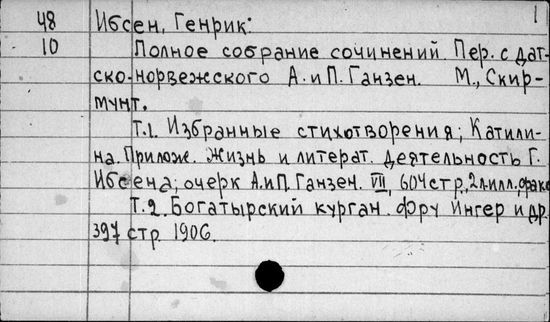 48 Ибсен, Генрик: 1
10 Полное собрание сочинений. Пер. с дат-
ско-норвежского А. и П. Ганзен. М., Скир-
мунт.
Т.1. Избранные стихотворения; Катили-
на. Прилож. Жизнь и литерат. деятельность Г.
Ибсена; очерк А. и П. Ганзен. VII, 604 стр., 2 л. илл., факс
Т.2. Богатырский курган. Фру Ингер и др.
397 стр. 1906.